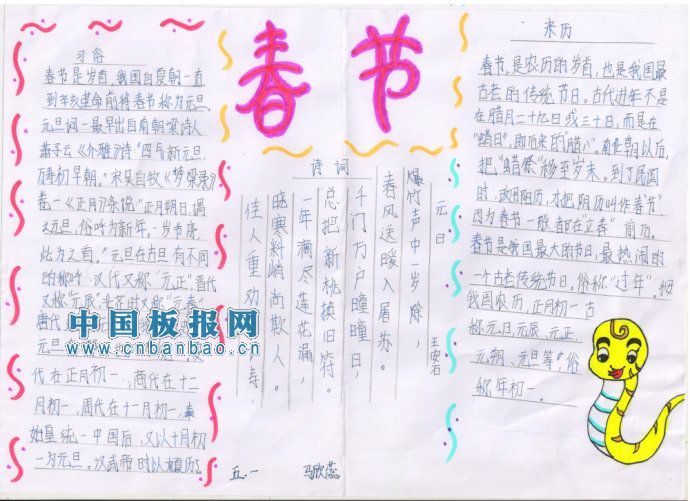 春节
习俗
春节是岁首,我国自夏朝一直
到辛亥革命前将春节称为元旦,
元旦词一最早出自南朝梁诗人
萧子云《介雅》诗"四气新元旦,
万寿初早朝。"宋吴自牧《梦粱录》
卷一《正月》条说"正月朔日,谓
之元旦,俗呼为新年。一岁节序,
此为之首。"元旦在古旦有不同
的称呼,汉代又称"元正"晋代
又称"元辰"北齐时又称"元春"
唐代
元旦
代在正月初一、商代在十二
月初一,周代在十一月初一,秦
始皇统一中国后,又以十月初
一为元旦。汉武帝时以
诗词
元日
王安石
爆竹声中一岁除,
春风送暖入屠苏。
千门万户曈曈日,
总把新桃换旧符。
一年滴尽莲花漏,
晓寒料峭尚欺人。
佳人重劝千
寿,
来历
春节,是农历的岁首,也是我国最
古老的传统节日。古代过年不是
在腊月二十九日或三十日,而是在
"蜡日",即后来的"腊八"。南北朝以后,
把"蜡祭"移至岁末。到了民国
时,改用阳历,才把阴历叫作春节",
因为春节一般都在"立春"前历。
春节是我国最大的节日,最热闹的
一个古老传统节日。俗称"过年"。按
我国农历,正月初一古
称元日、元辰、元正、
元朔、元旦等",俗
称年初一。
五.一 马欣蕊
中国板报网
www.cnbanbao.cn